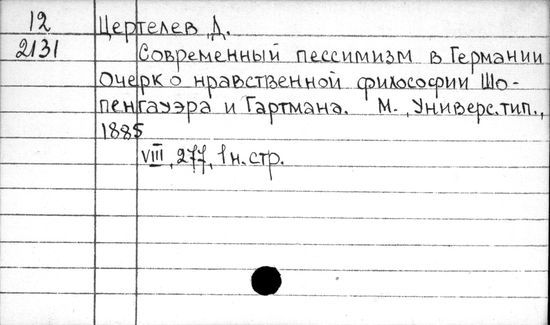 12 Цертелев, Д.
2131 Современный пессимизм в Германии
Очерк о нравственной философии Шо-
пенгауэра и Гартмана. М., Универс.тип.,
1885
VIII, 277, 1 н.стр.